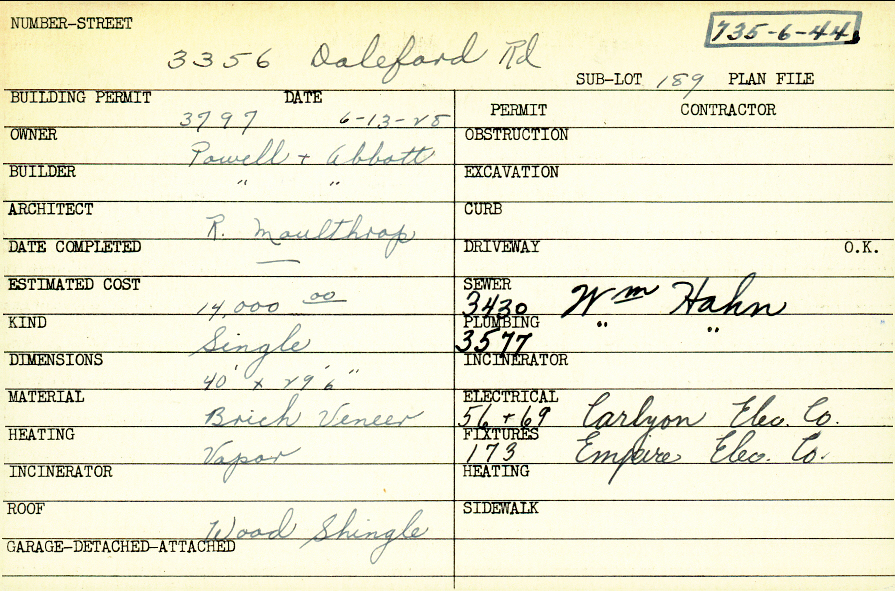 NUMBER-STREET
735-6-44
3356 Daleford Rd
SUB-LOT 189 PLAN FILE
BUILDING PERMIT DATE
3797 6-13-28
OWNER
Powell + Abbott
BUILDER
" "
ARCHITECT
R. Moulthrop
DATE COMPLETED
—
ESTIMATED COST
14,000 00
KIND
Single
DIMENSIONS
40' x 29' 6"
MATERIAL
Brick Veneer
HEATING
Vapor
INCINERATOR
ROOF
Wood Shingle
GARAGE-DETACHED-ATTACHED
PERMIT CONTRACTOR
OBSTRUCTION
EXCAVATION
CURB
DRIVEWAY O.K.
SEWER
3430 Wm Hahn
PLUMBING
3577 " "
INCINERATOR
ELECTRICAL
56 + 69 Carlyon Elec. Co.
FIXTURES
173 Empire Elec. Co.
HEATING
SIDEWALK